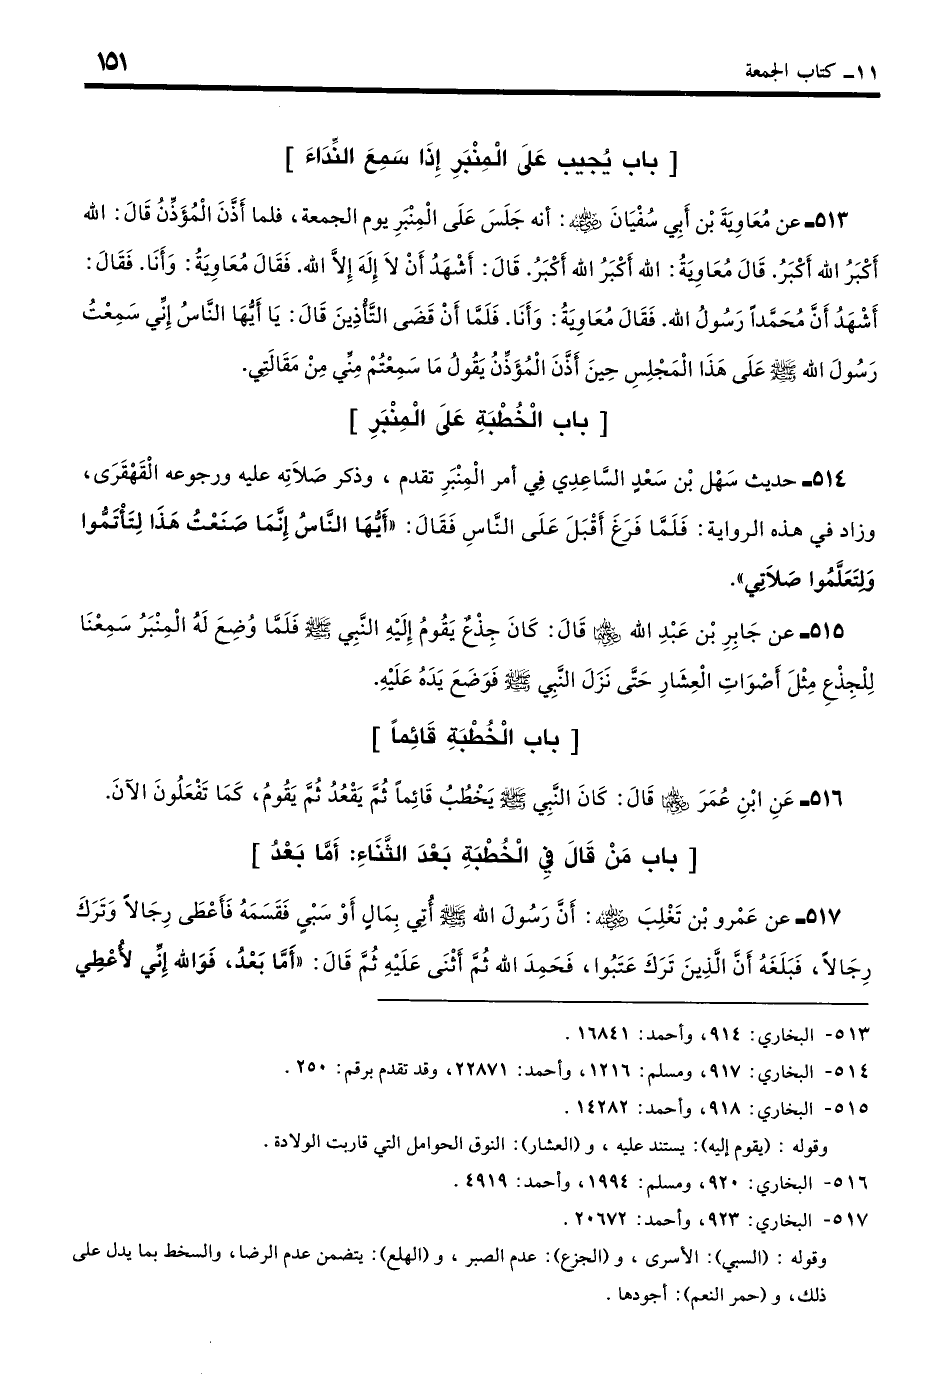 ١١ـ كتاب الجمعة
١٥١
[ باب يُجيب عَلَى الْمِنْبَرِ إِذَا سَمِعَ النِّدَاءَ ]
٥١٣ـ عن مُعَاوِيَةَ بْن أَبي سُفْيَانَ ﵁ : أنه جَلَسَ عَلَى الْمِنْبَرِ يوم الجمعة، فلما أَذَّنَ الْمُؤَذِّنُ قَالَ: الله
أَكْبَرُ الله أَكْبَرُ. قَالَ مُعَاوِيَةُ: الله أَكْبَرُ الله أَكْبَرُ. قَالَ: أَشْهَدُ أَنْ لاَ إِلَهَ إِلاَّ الله. فَقَالَ مُعَاوِيَةُ: وَأَنَا. فَقَالَ:
أَشْهَدُ أَنَّ مُحَمَّداً رَسُولُ الله. فَقَالَ مُعَاوِيَةُ: وَأَنَا. فَلَمَّا أَنْ قَضَى التَّأْذِينَ قَالَ: يَا أَيُّهَا النَّاسُ إِنِّي سَمِعْتُ
رَسُولَ الله ﷺ عَلَى هَذَا الْمَجْلِسِ حِينَ أَذَّنَ الْمُؤَذِّنُ يَقُولُ مَا سَمِعْتُمْ مِنِّي مِنْ مَقَالَتِي.
[ باب الْخُطْبَةِ عَلَى الْمِنْبَرِ ]
٥١٤ـ حديث سَهْل بْن سَعْدٍ السَّاعِدِي فِي أمر الْمِنْبَرِ تقدم ، وذكر صَلاَتِه عليه ورجوعه الْقَهْقَرَى،
وزاد في هذه الرواية: فَلَمَّا فَرَغَ أَقْبَلَ عَلَى النَّاسِ فَقَالَ: «أَيُّهَا النَّاسُ إِنَّمَا صَنَعْتُ هَذَا لِتَأْتَمُّوا
وَلِتَعَلَّمُوا صَلاَتِي».
٥١٥ـ عن جَابِرِ بْن عَبْدِ الله ﵄ قَالَ: كَانَ جِذْعٌ يَقُومُ إِلَيْهِ النَّبِي ﷺ فَلَمَّا وُضِعَ لَهُ الْمِنْبَرُ سَمِعْنَا
لِلْجِذْعِ مِثْلَ أَصْوَاتِ الْعِشَارِ حَتَّى نَزَلَ النَّبِي ﷺ فَوَضَعَ يَدَهُ عَلَيْهِ.
[ باب الْخُطْبَةِ قَائِماً ]
٥١٦ـ عَنِ ابْنِ عُمَرَ ﵄ قَالَ: كَانَ النَّبِي ﷺ يَخْطُبُ قَائِماً ثُمَّ يَقْعُدُ ثُمَّ يَقُومُ، كَمَا تَفْعَلُونَ الآنَ.
[ باب مَنْ قَالَ فِي الْخُطْبَةِ بَعْدَ الثَّنَاءِ: أَمَّا بَعْدُ ]
٥١٧ـ عن عَمْرو بْن تَغْلِبَ ﵁ : أَنَّ رَسُولَ الله ﷺ أُتِي بِمَالٍ أَوْ سَبْيٍ فَقَسَمَهُ فَأَعْطَى رِجَالاً وَتَرَكَ
رِجَالاً، فَبَلَغَهُ أَنَّ الَّذِينَ تَرَكَ عَتَبُوا، فَحَمِدَ الله ثُمَّ أَثْنَى عَلَيْهِ ثُمَّ قَالَ: «أَمَّا بَعْدُ، فَوَالله إِنِّي لأُعْطِي
٥١٣- البخاري: ٩١٤، وأحمد: ١٦٨٤١ .
٥١٤- البخاري: ٩١٧، ومسلم: ١٢١٦، وأحمد: ٢٢٨٧١، وقد تقدم برقم: ٢٥٠ .
٥١٥- البخاري: ٩١٨، وأحمد: ١٤٢٨٢ .
وقوله : (يقوم إليه): يستند عليه ، و (العشار): النوق الحوامل التي قاربت الولادة .
٥١٦- البخاري: ٩٢٠، ومسلم: ١٩٩٤، وأحمد: ٤٩١٩ .
٥١٧- البخاري: ٩٢٣، وأحمد: ٢٠٦٧٢ .
وقوله : (السبي): الأسرى ، و (الجزع): عدم الصبر ، و (الهلع): يتضمن عدم الرضا، والسخط بما يدل على
ذلك، و (حمر النعم): أجودها .